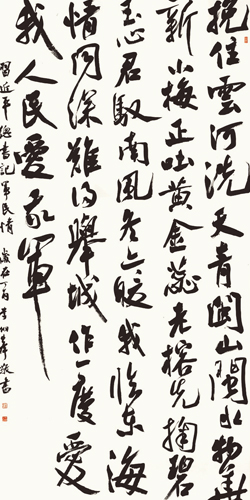 挽住雲河洗天青閩山閩水物華
新小梅正吐黃金蕊老榕先掬碧
玉心君馭南風冬亦暖我臨東海
情同深難得舉城作一慶愛
我人民愛我軍
習近平總書記軍民情 歲在丁酉 敬書